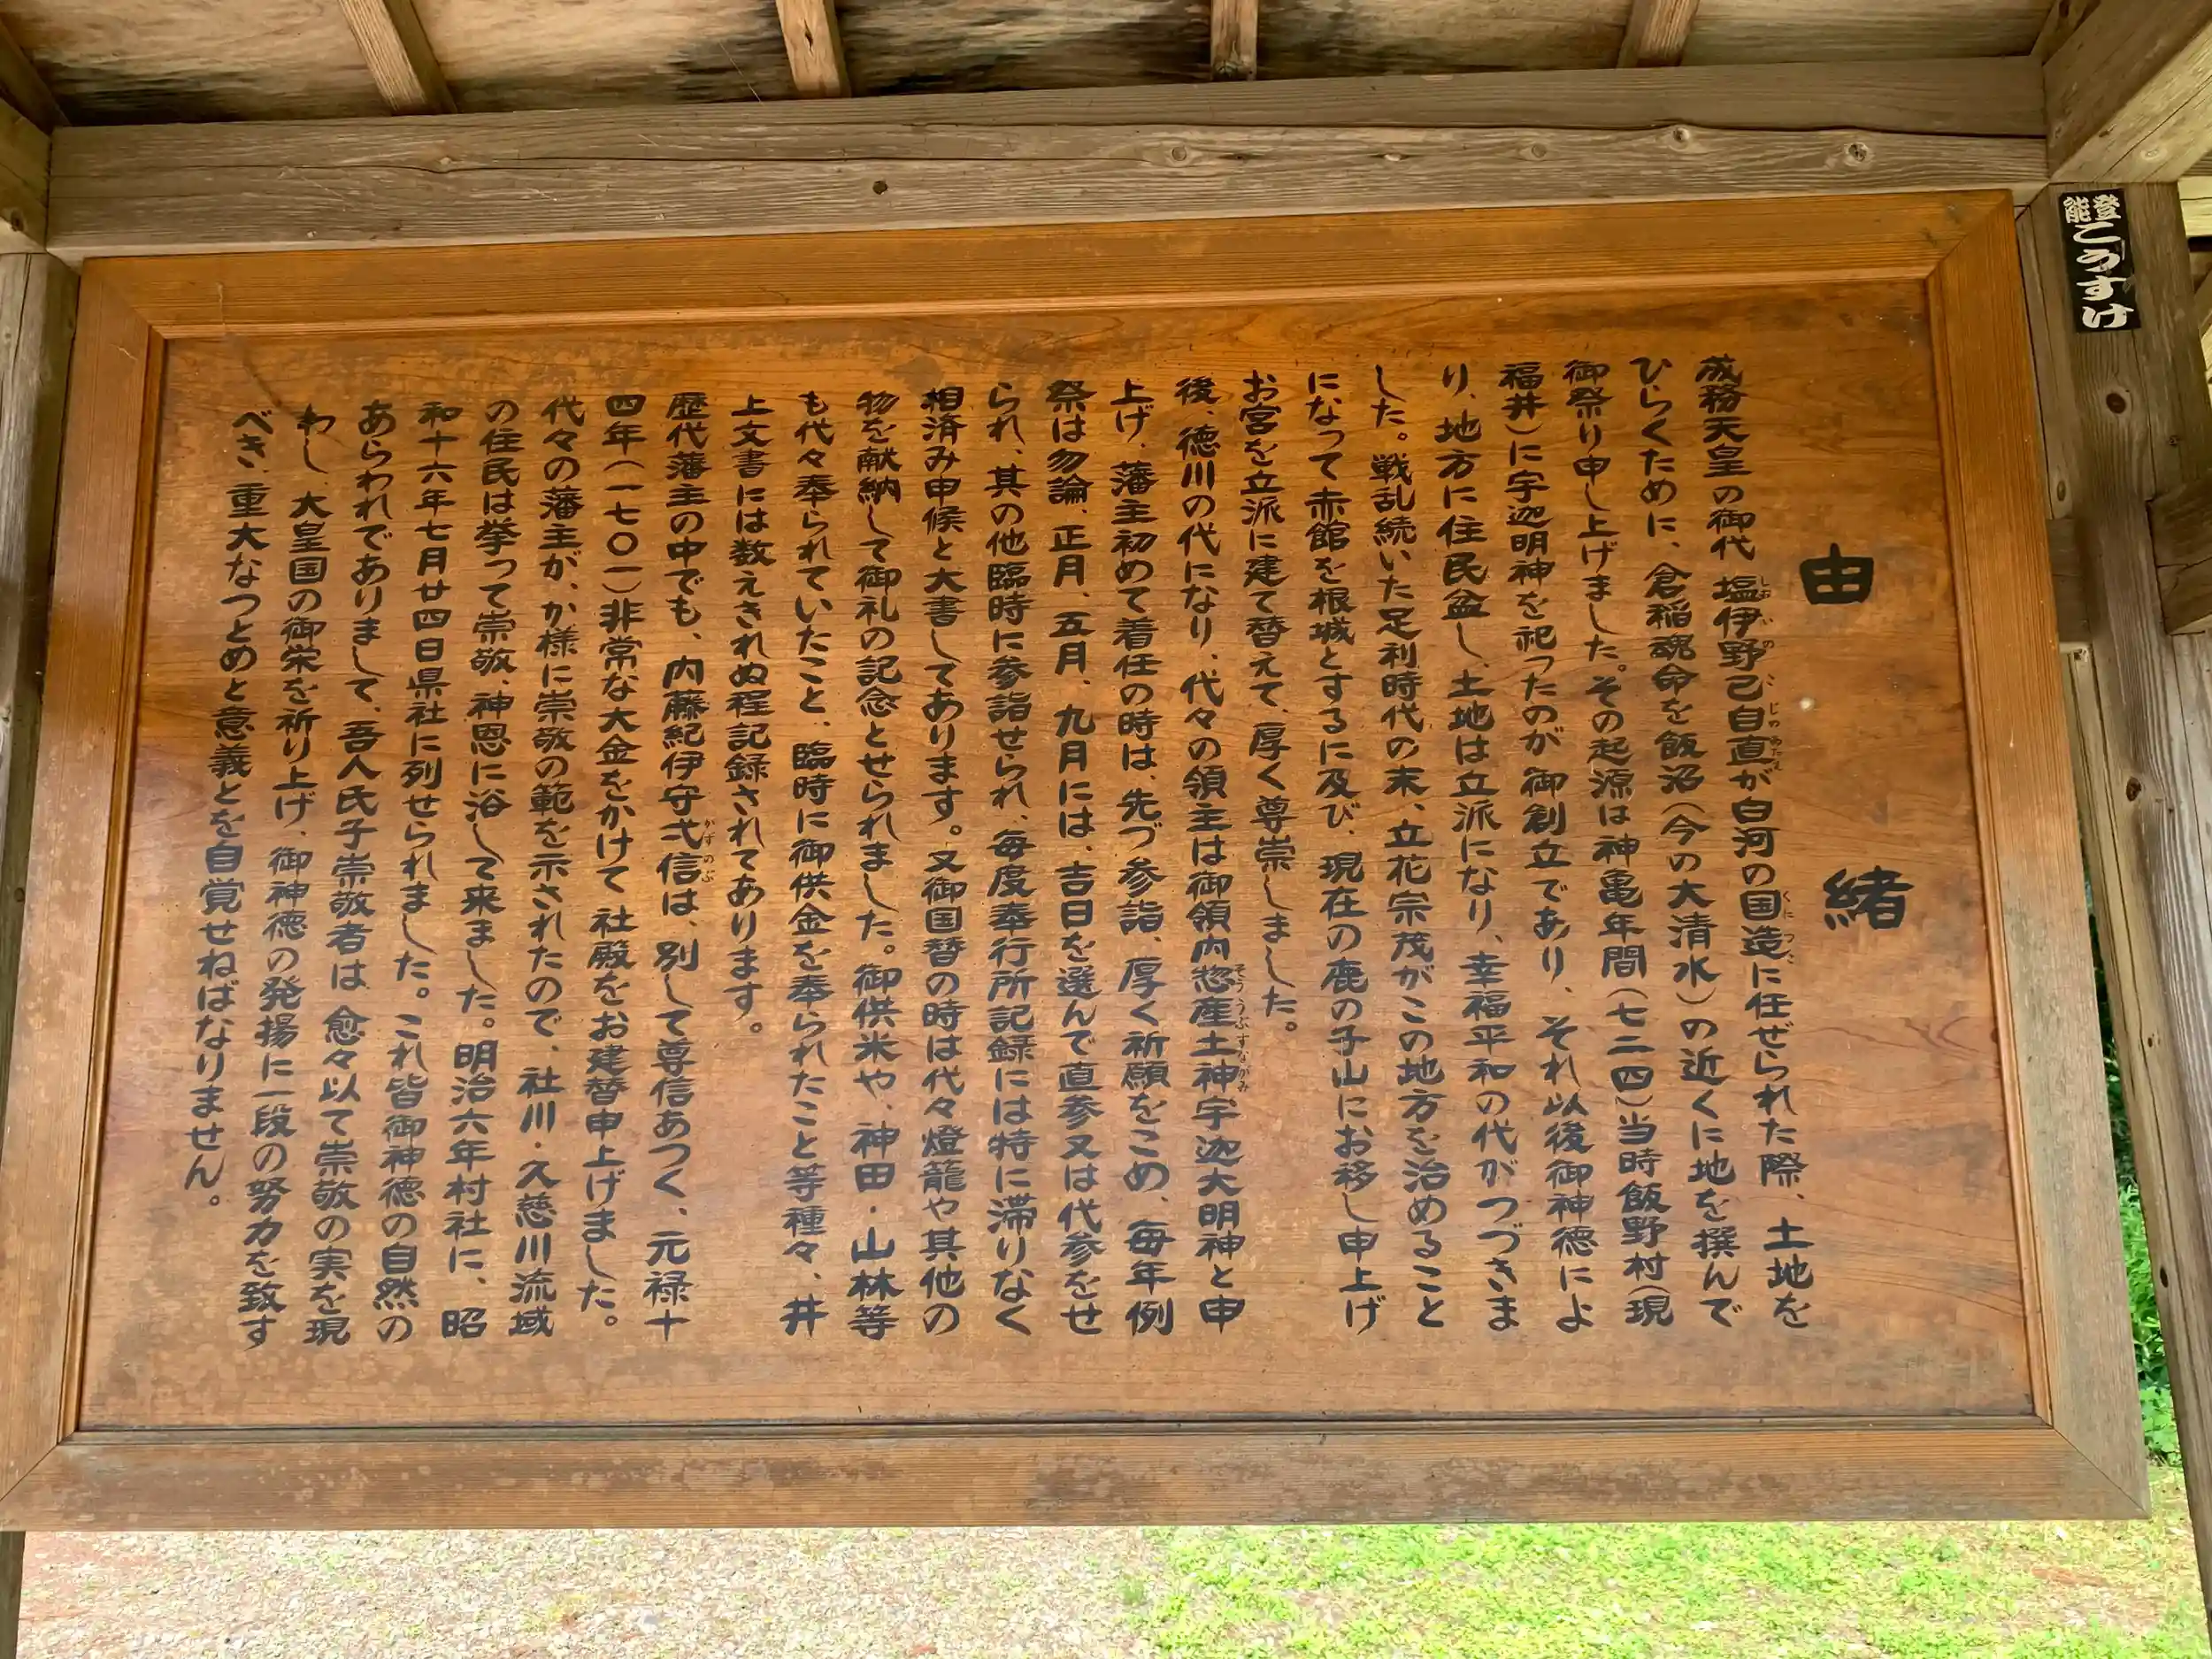 由緒
成務天皇の御代 塩伊野己自直が白河の国造に任ぜられた際、土地を
しおいのこじのあたえ
くにつこ
ひらくために、倉稲魂命を飯沼(今の大清水)の近くに地を撰んで
御祭り申し上げました。その起源は神亀年間(七二四)当時飯野村(現
福井)に宇迦明神を祀ったのが御創立であり、それ以後御神徳によ
り、地方に住民益し、土地は立派になり、幸福平和の代がつづきま
した。戦乱続いた足利時代の末、立花宗茂がこの地方を治めること
になって赤館を根城とするに及び、現在の鹿の子山にお移し申上げ
お宮を立派に建て替えて、厚く尊崇しました。
後、徳川の代になり、代々の領主は御領内惣産土神宇迦大明神と申
そううぶすながみ
上げ、藩主初めて着任の時は、先づ参詣、厚く祈願をこめ、毎年例
祭は勿論、正月、五月、九月には、吉日を選んで直参又は代参をせ
られ、其の他臨時に参詣せられ、毎度奉行所記録には特に滞りなく
相済み申候と大書してあります。又御国替の時は代々燈籠や其他の
物を献納して御礼の記念とせられました。御供米や、神田・山林等
も代々奉られていたこと、臨時に御供金を奉られたこと等種々、井
上文書には数えきれぬ程記録されてあります。
歴代藩主の中でも、内藤紀伊守弌信は、別して尊信あつく、元禄十
かずのぶ
四年(一七〇一)非常な大金をかけて 社殿をお建替申上げました。
代々の藩主が、か様に崇敬の範を示されたので、社川・久慈川流域
の住民は挙って崇敬、神恩に浴して来ました。明治六年村社に、昭
和十六年七月廿四日県社に列せられました。これ皆御神徳の自然の
あらわれでありまして、吾人氏子崇敬者は 愈々以て崇敬の実を現
わし、大皇国の御栄を祈り上げ、御神徳の発揚に一段の努力を致す
べき、重大なつとめと意義とを自覚せねばなりません。
能登
こうすけ